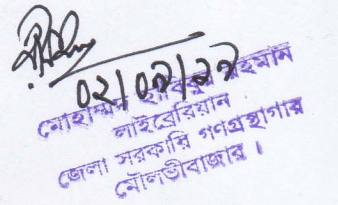 ০২/০৯/২৯
মোহাম্মদ হাবিবুর রহমান
লাইব্রেরিয়ান
জেলা সরকারি গণগ্রন্থাগার
মৌলভীবাজার।